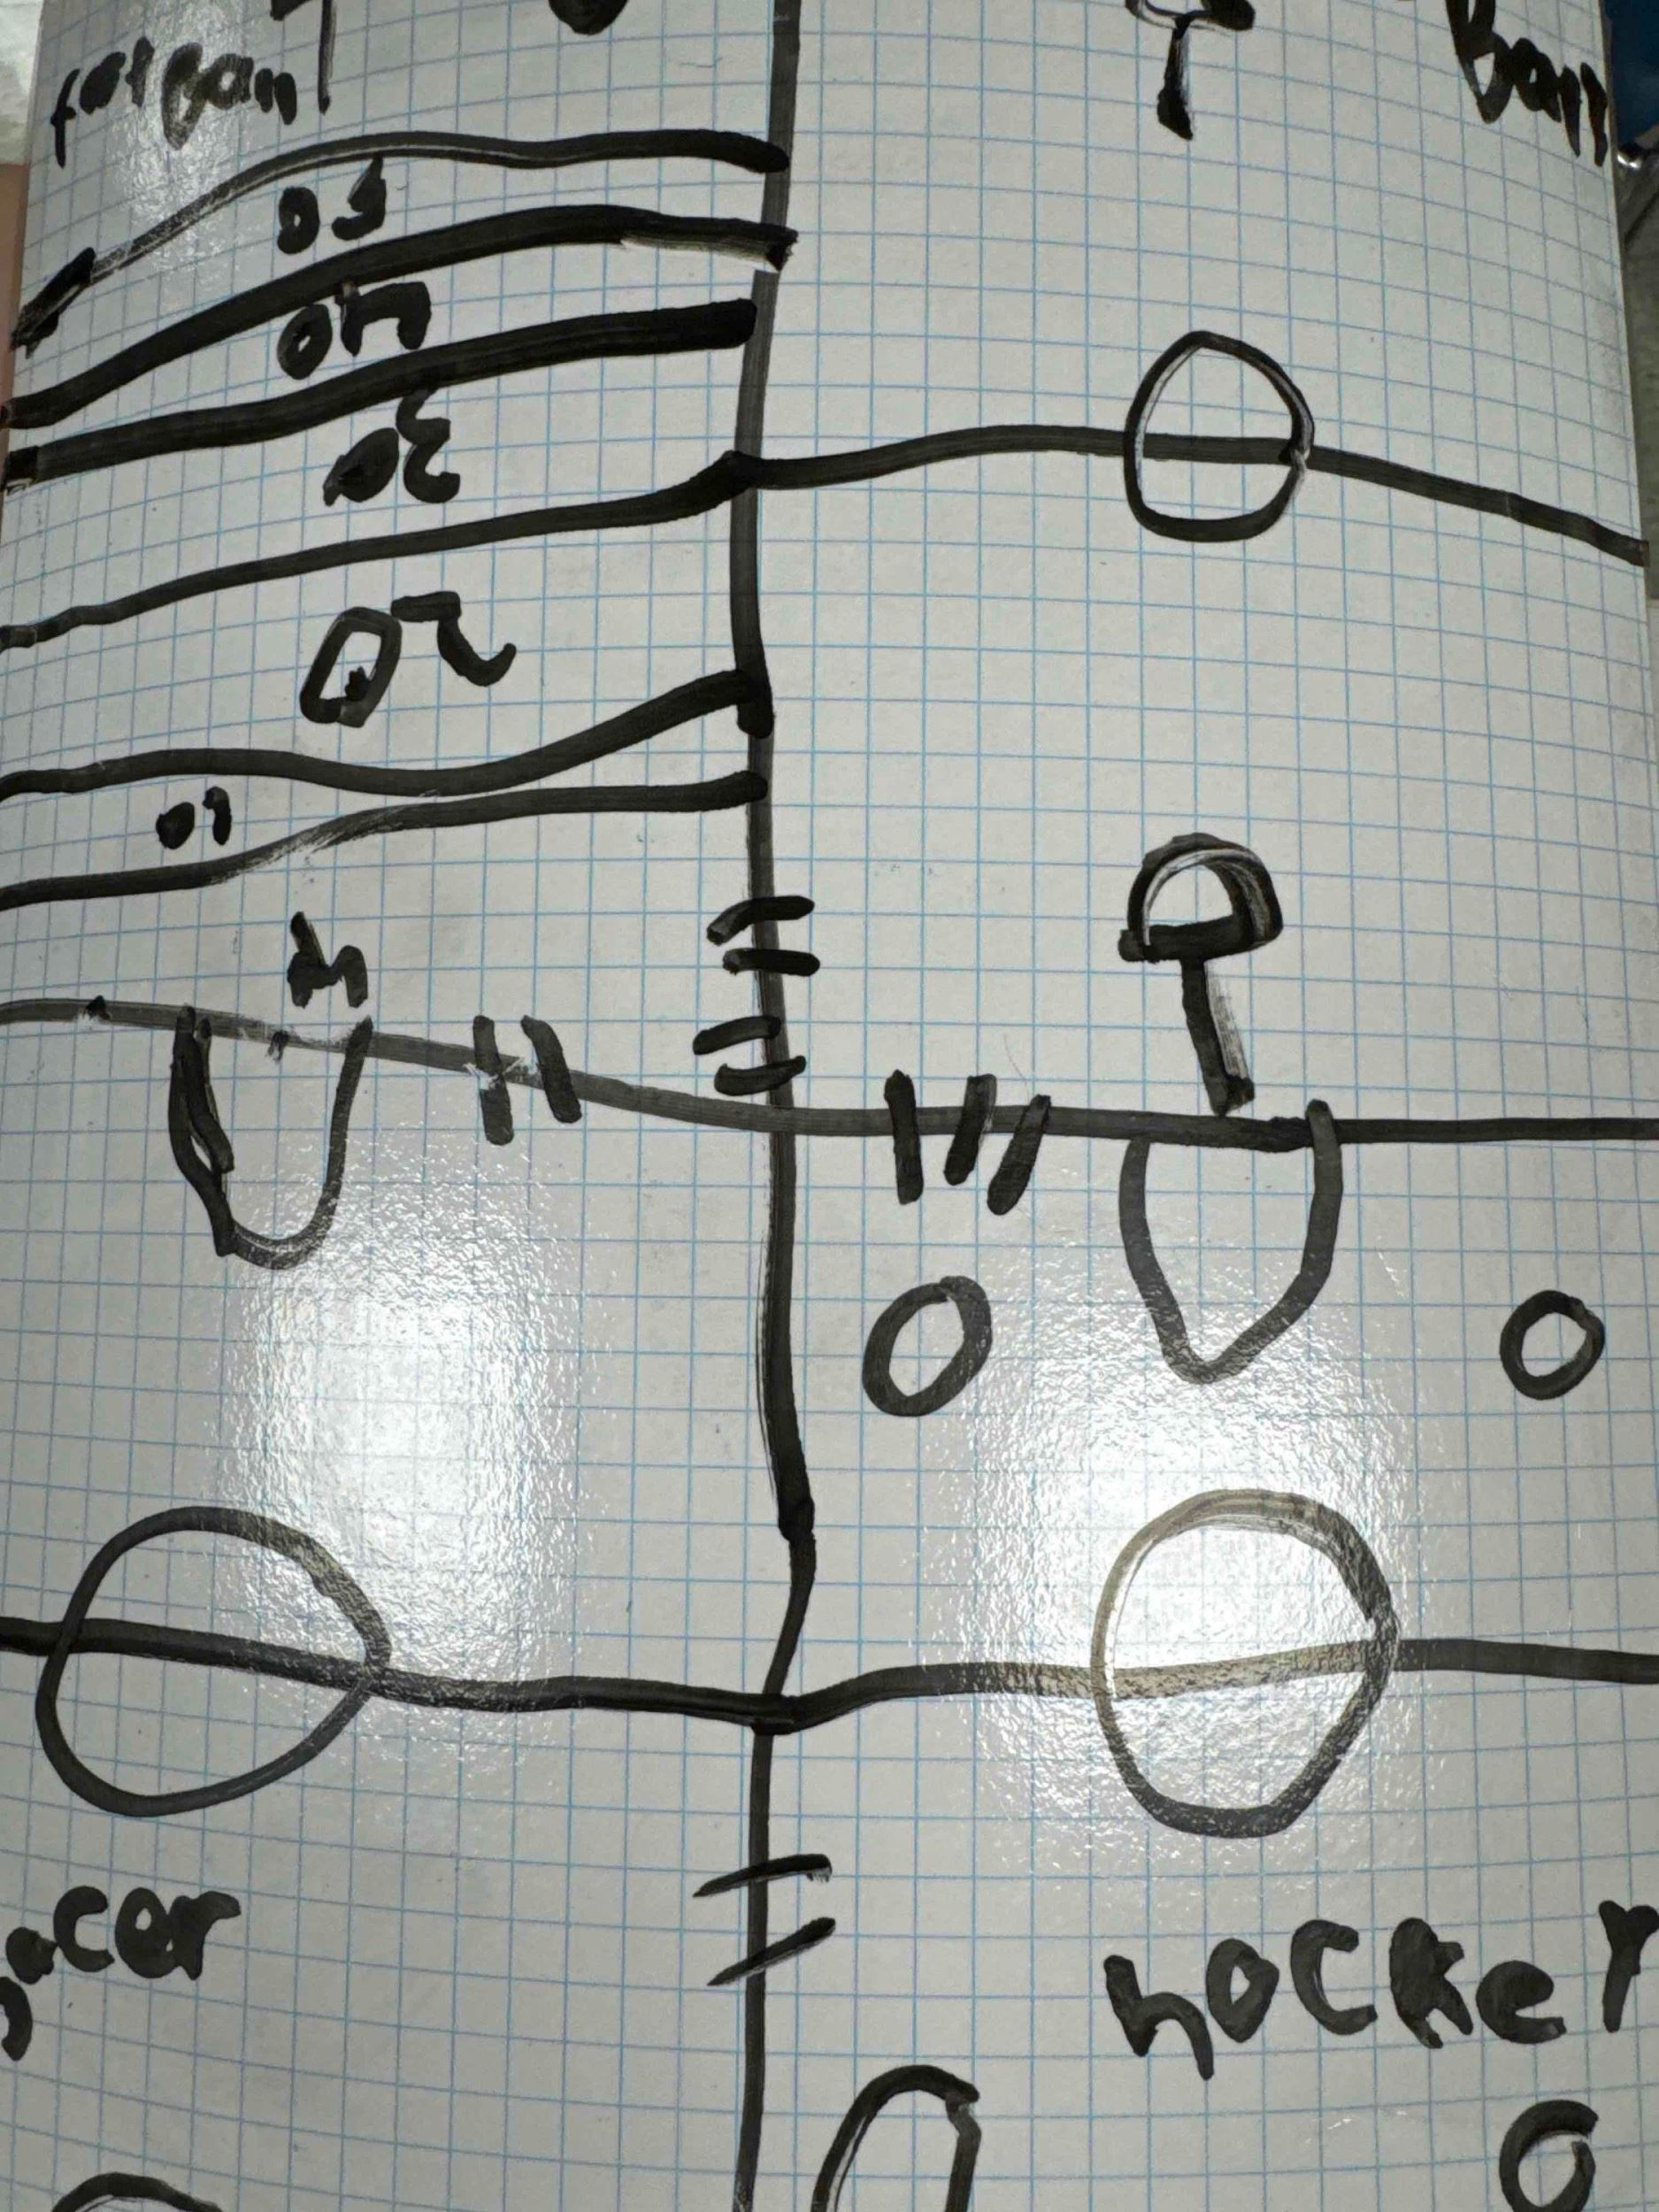 fotBall
Ball
50
40
30
20
10
socer
hockey